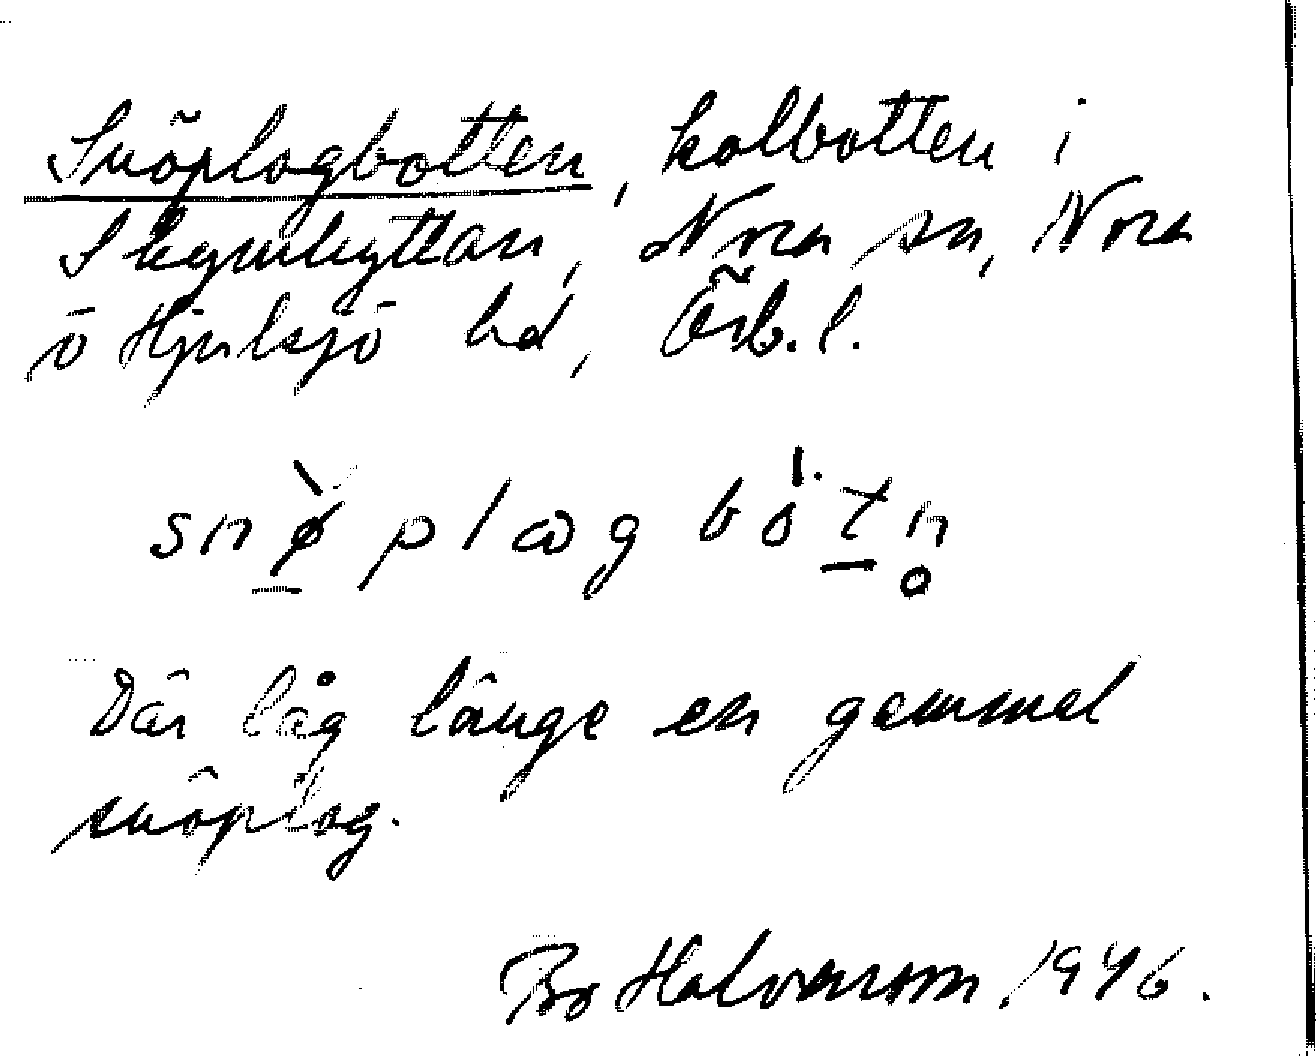 Snöplogbotten, kolbotten i
Skrymhyttan, Nora sn, Nora
o Hjulsjö bd, Örb. l.
snø̀plωgbòt̠n̥
Där låg länge en gammal
snöplog.
Bo Halvarsson, 1946.